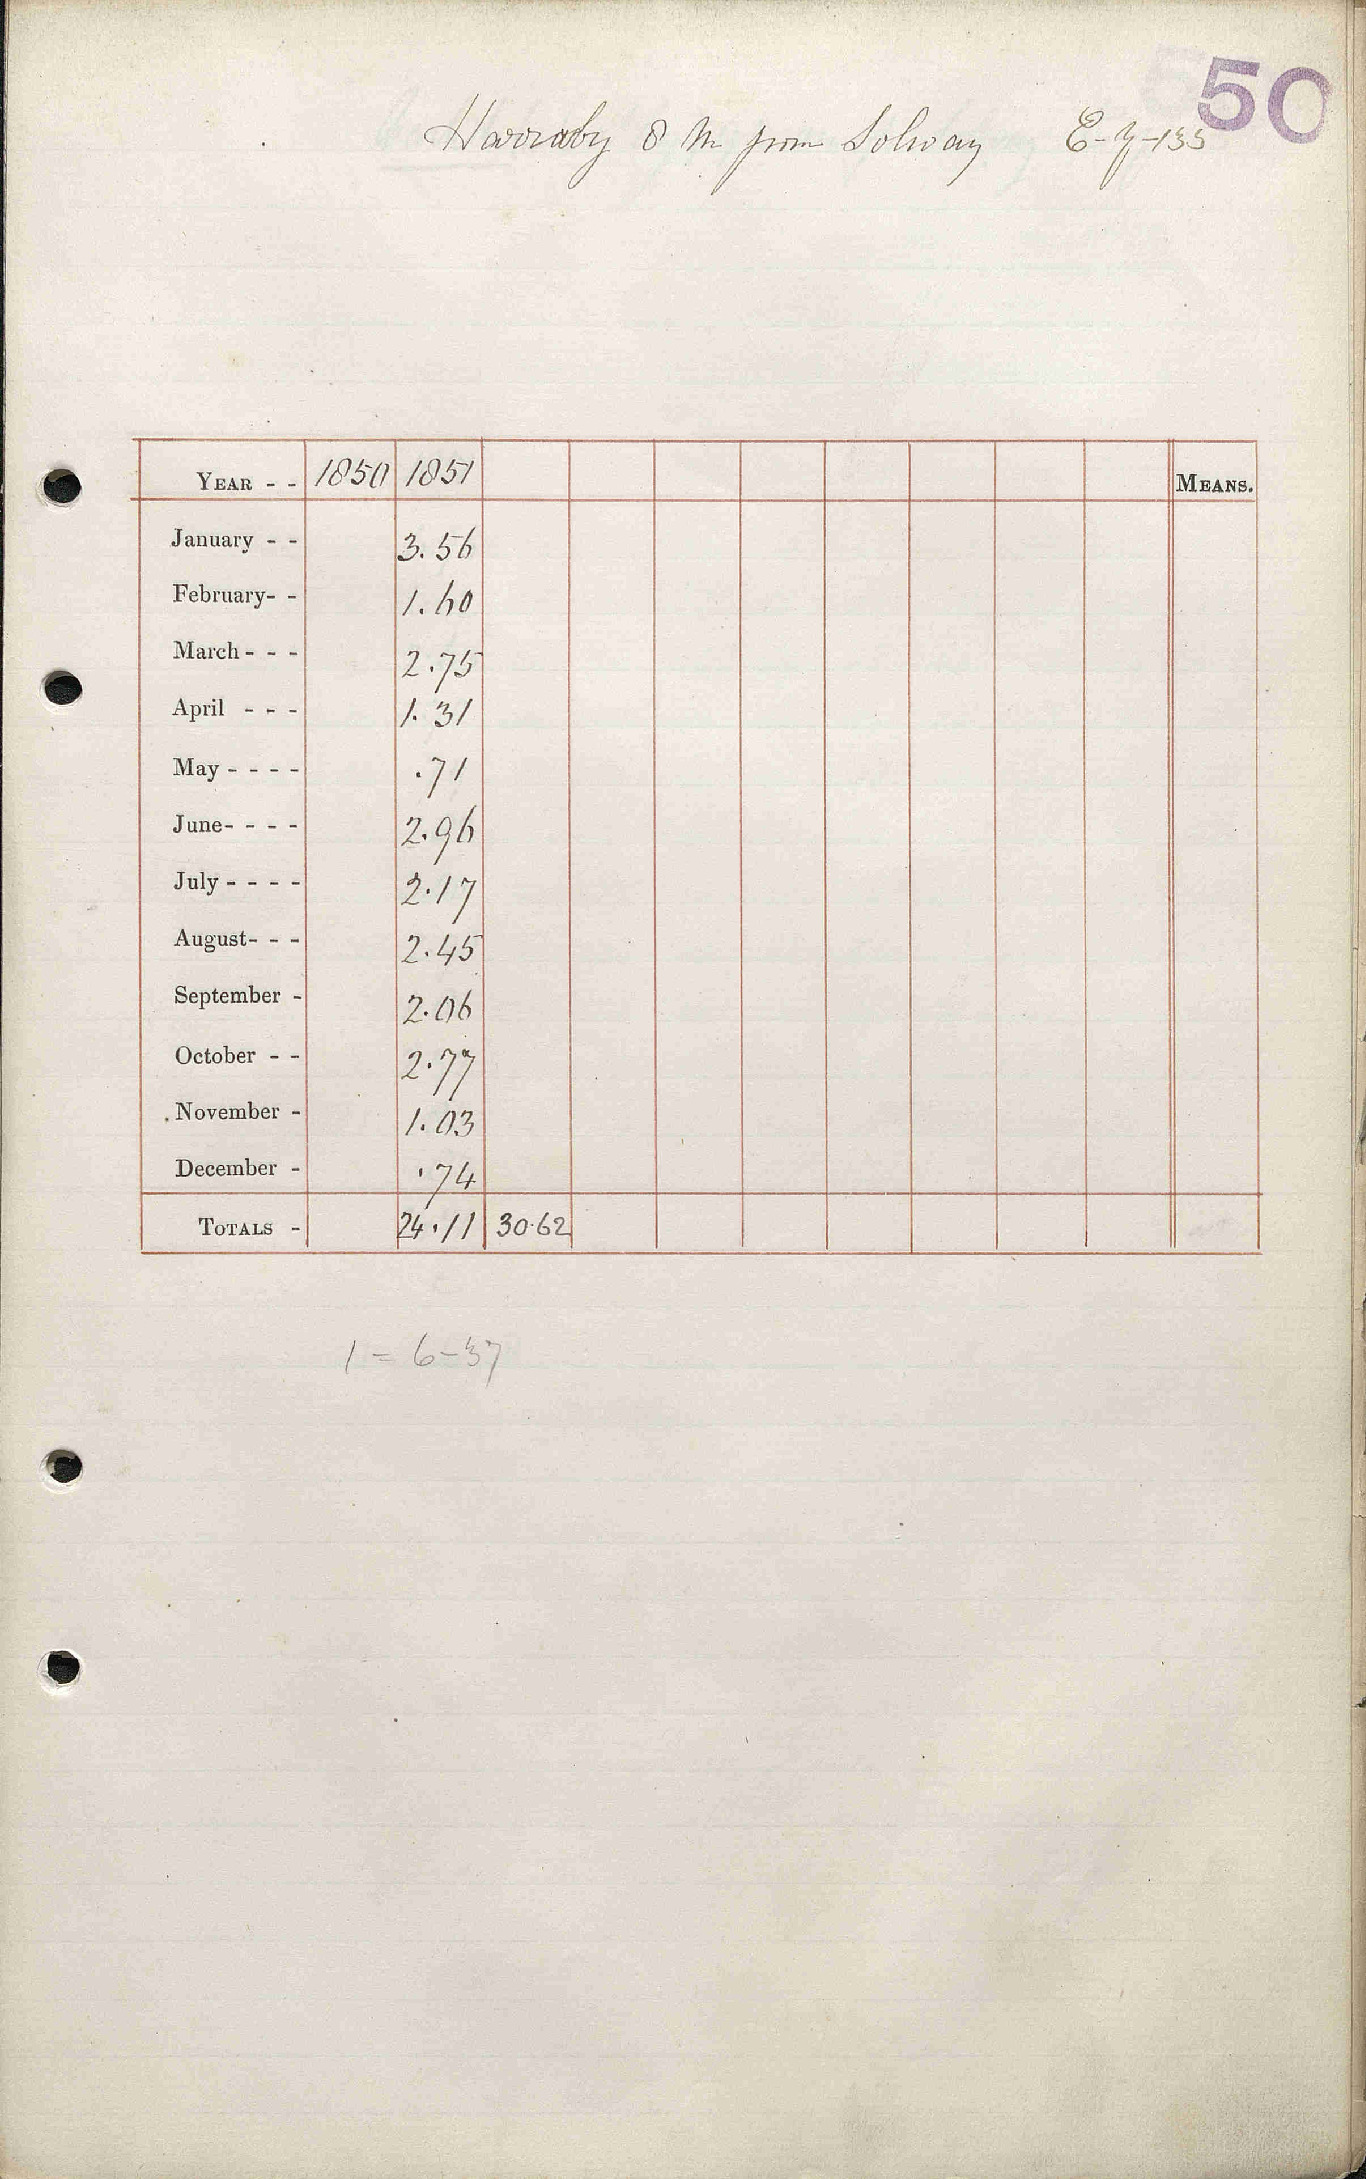 50
Harraby 8 m from Solway E-7-135
YEAR - - 1850 1851 MEANS.
January - - 3.56
February- - 1.60
March - - - 2.75
April - - - 1.31
May - - - - .71
June- - - - 2.96
July - - - - 2.17
August- - - 2.45
September - 2.06
October - - 2.77
November - 1.03
December - .74
TOTALS - 24.11 30.62
1 = 6-37